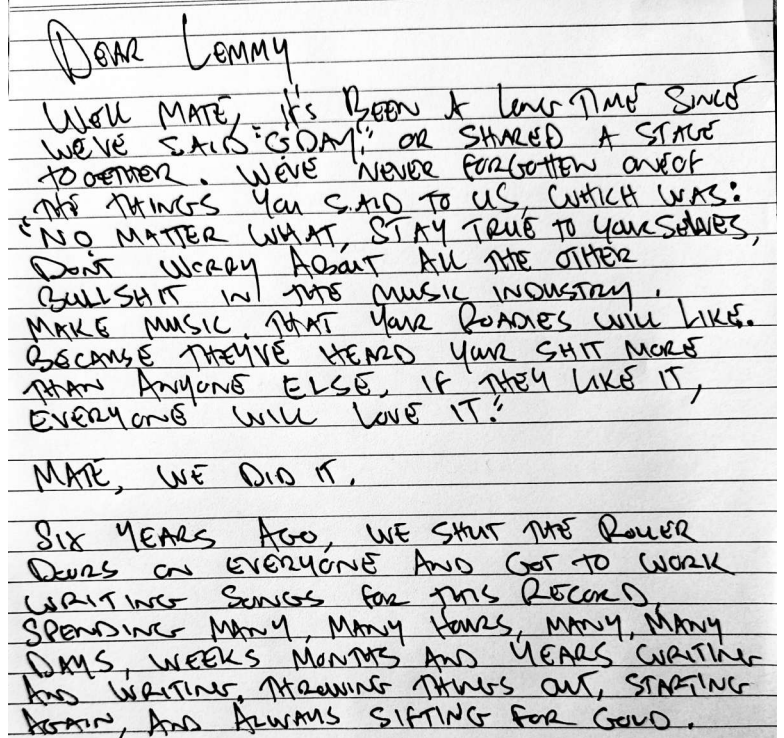 DEAR LEMMY
WELL MATE, IT'S BEEN A LONG TIME SINCE
WE'VE SAID "G'DAY," OR SHARED A STAGE
TOGETHER. WE'VE NEVER FORGOTTEN ONE OF
THE THINGS YOU SAID TO US, WHICH WAS:
"NO MATTER WHAT, STAY TRUE TO YOURSELVES,
DON'T WORRY ABOUT ALL THE OTHER
BULLSHIT IN THE MUSIC INDUSTRY.
MAKE MUSIC THAT YOUR ROADIES WILL LIKE.
BECAUSE THEY'VE HEARD YOUR SHIT MORE
THAN ANYONE ELSE, IF THEY LIKE IT,
EVERYONE WILL LOVE IT."
MATE, WE DID IT.
SIX YEARS AGO, WE SHUT THE ROLLER
DOORS ON EVERYONE AND GOT TO WORK
WRITING SONGS FOR THIS RECORD,
SPENDING MANY, MANY HOURS, MANY, MANY
DAYS, WEEKS MONTHS AND YEARS WRITING
AND WRITING, THROWING THINGS OUT, STARTING
AGAIN, AND ALWAYS SIFTING FOR GOLD.